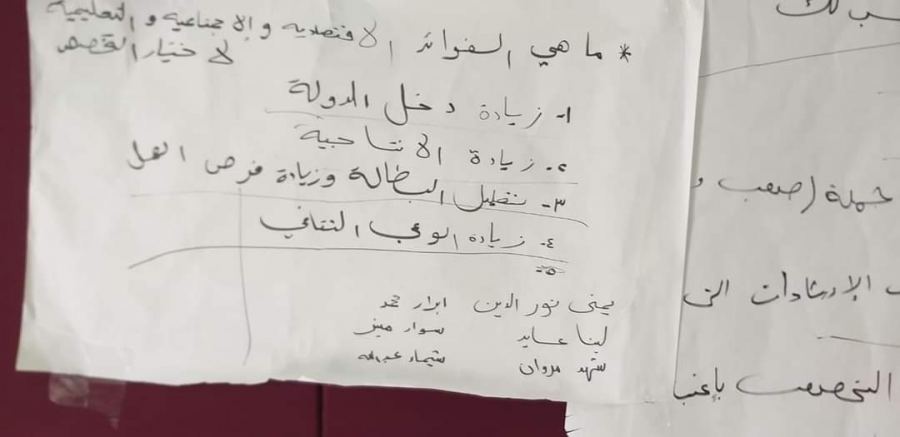 * ما هي الفوائد الاقتصاديه والاجتماعية والتعليمية
لاختيار التخصص
١- زيادة دخل الدولة
٢- زيادة الانتاجية
٣- تقليل البطالة وزيادة فرص العمل
٤- زيادة الوعي الثقافي
٥-
يمنى نور الدين ابرار محمد
لينا عايد سوار
شهد مروان شيماء عبدالله
حملة (صعب و
الإرشادات التي
التخصص